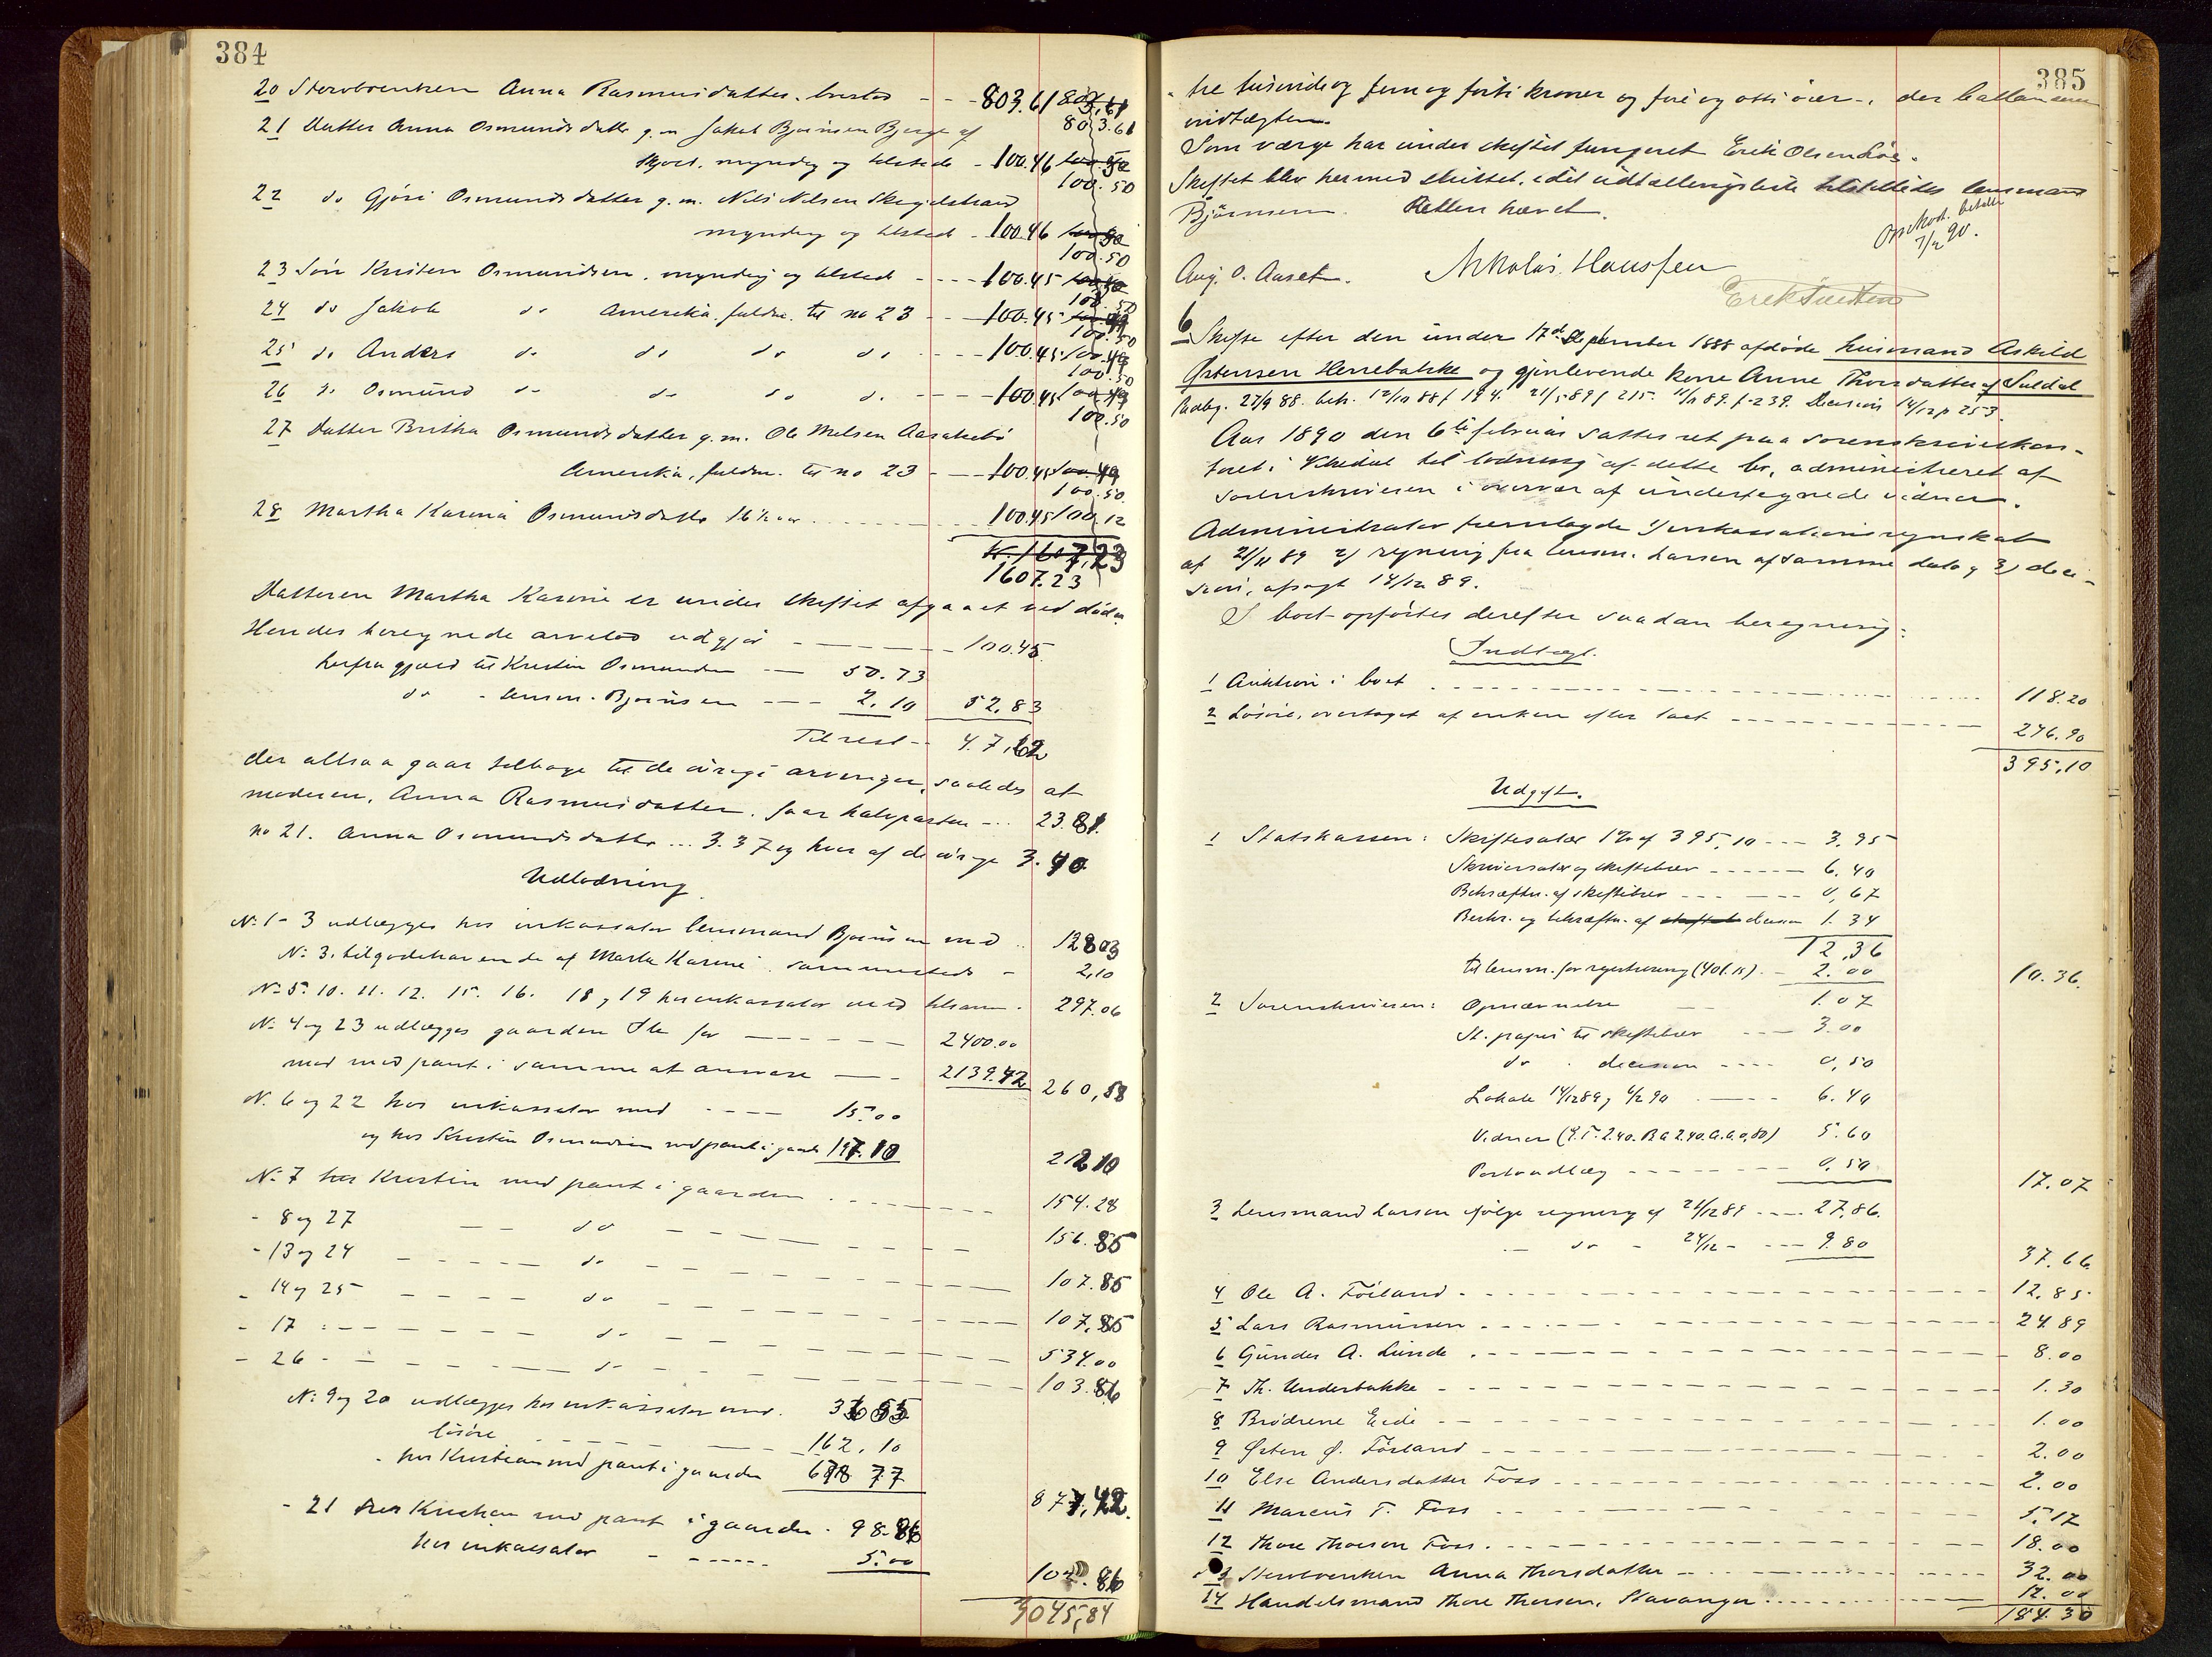 384
20 Stervboenken Anna Rasmusdatter, - - - 803.61
803.61
21 Datter Anna Osmundsdatter g.m. Jakob Bjørnsen Berge af
Skjold, myndig og tilstede - 100.46
100.50
22 do Gjøri Osmundsdatter g.m. Nils Nilsen
myndig og tilstede - 100.46
100.50
23 Søn Kristen Osmundsen, myndig og tilsted - - - - 100.45
24 do Jakob do Amerika, fuldm. til no 23 - - 100.45
100.50
25 do Anders do do do do - - - - 100.45
100.50
26 do Osmund do do do do - - - - 100.45
100.50
27 Datter Britha Osmundsdatter g.m. Ole
Amerika, fuldm. til no 23 - - - 100.45
100.50
28 Martha Karina Osmundsdatter 16½ aar - - - 100.45 100.12
Kr. 1607,23
1607.23
Datteren Martha Karine er under skiftet afgaaet ved døden
Hendes beregnede arvelod udgjør - - - - - - 100.45
herfra gjæld til Kristen Osmundsen - - 50.73
do - lensm. Bjørnsen - - - 2.10 52,83
Til rest - - 47,62
der altsaa gaar tilbage til de øvrige arvinger, saaledes at
moderen, Anna Rasmusdatter, faar halvparten - - - 23.81
no 21. Anna Osmundsdatter ... 3.37 og hver af de øvrige 3.40
Udlodning
No 1-3 udlægges hos inkassator lensmand Bjørnsen med .. 12803
No 3. tilgodehavende af Marta Karine sammesteds - 2,10
No 5. 10. 11. 12. 15. 16. 18 og 19 hos inkassator med tilsam. 297.06
No 4 og 23 udlægges gaarden for - - - - - 2400.00
mod med pant i samme at - - - 2139.42 260,58
No 6 og 22 hos inkassator med - - - - 15.00
og hos Kristen Osmundsen med pant i gaarden 197.10
212 10
No 7 hos Kristen med pant i gaarden - - - - 154.28
- 8 og 27 - - do - - - - - - 156.85
- 13 og 24 - - - - do - - - - - - 107.85
- 14 og 25 - - - - do - - - - - - 107,85
- 17 : - - - - - do - - - - - 534.00
- 26 - - - - - do - - - - - 103.86
No 9 og 20 udlægges hos inkassator med.
løsøre - - - - - 162.10
- hos Kristian med pant i gaarden 77
- 21 hos Kristian med pant i gaarden . 98.86
hos inkassator - - - - - - 5.00
86
3045,84
385
- tre tusinde og fem og førti kroner og fire og otti øre -, der
indtægten.
Som værge har under skiftet fungeret Erik Olsen
Skiftet blev hermed sluttet, idet udtællingsliste tilstilledes lensmand
Bjørnsen. Retten hævet.
betalte
7/2 90.
Aug. O. Aaset. Nikolai Hansen
6 Skifte efter den under 17de September 1888 afdøde husmand Askild
Østensen Herrebakke og gjenlevende kone Anne Thorsdatter af Suldal
27/9 88. beh. 12/10 88 f 194. 21/5 89 f 215. 11/11 89. f 239. Decision 14/12 p 253.
Aar 1890 den 6te februar sattes ret paa sorenskriverkon-
toret i til lodning af dette bo, administreret af
sorenskriveren i overvær af undertegnede vidner.
Administrator fremlagde 1) inkassationsregnskab
af 21/11 89 2) regning fra lensm. Larsen af samme dato og 3) deci-
sion, afsagt 14/12 89.
I boet opførtes derefter saadan beregning:
Indtægt.
1 Auktion i boet - - - - - - 118.20
2 Løsøre, overtaget af enken efter taxt - - - - - 276.90
395,10
Udgift.
1 Statskassen: Skiftesalær 1% af 395,10 - - - 3.95
Skriversalær og skiftebrev - - - - - - 6.40
Bekræftn. af skiftebrev - - - - - - 0,67
Beskr. og bekræftn. af decision 1.34
12,36
til lensm. for registrering (40 f. 15) - - 2.00 10.36.
2 Sorenskriveren: Opnævnelse - - 1.07
St. papir til skiftebrev - - - 3.00
do - decision - - - - 0,50
Lokale 14/12 89 og 6/2 90 - - - - 6.40
Vidner (E.T. 2.40. R.A 2.40. A.A. 0,80) 5.60
Portoudlæg - - - - - - 0.50 17.07
3 Lensmand Larsen ifølge regning af 21/12 89 - - - - 27.86.
- do - 24/12 - - - - 9.80 37.66.
4 Ole A. Førland - - - - - 12.85
5 Lars Rasmussen - - - - - 24.89
6 Gunder A. Lunde - - - - - 8.00
7 Th. Underbakke - - - - - 1.30
8 Brødrene Eide - - - - - 1.00
9 Østen Ø. Førland - - - - - 2.00
10 Else Andersdatter Foss - - - - - 2.00
11 Marcus T. Foss - - - - - 5.17
12 Thore Thorson Foss - - - - - 18.00
13 Stervboenken Anna Thorsdatter - - - - - 32.00
14 Handelsmand Thore Thorsen, Stavanger - - - - - 12.00
184.30